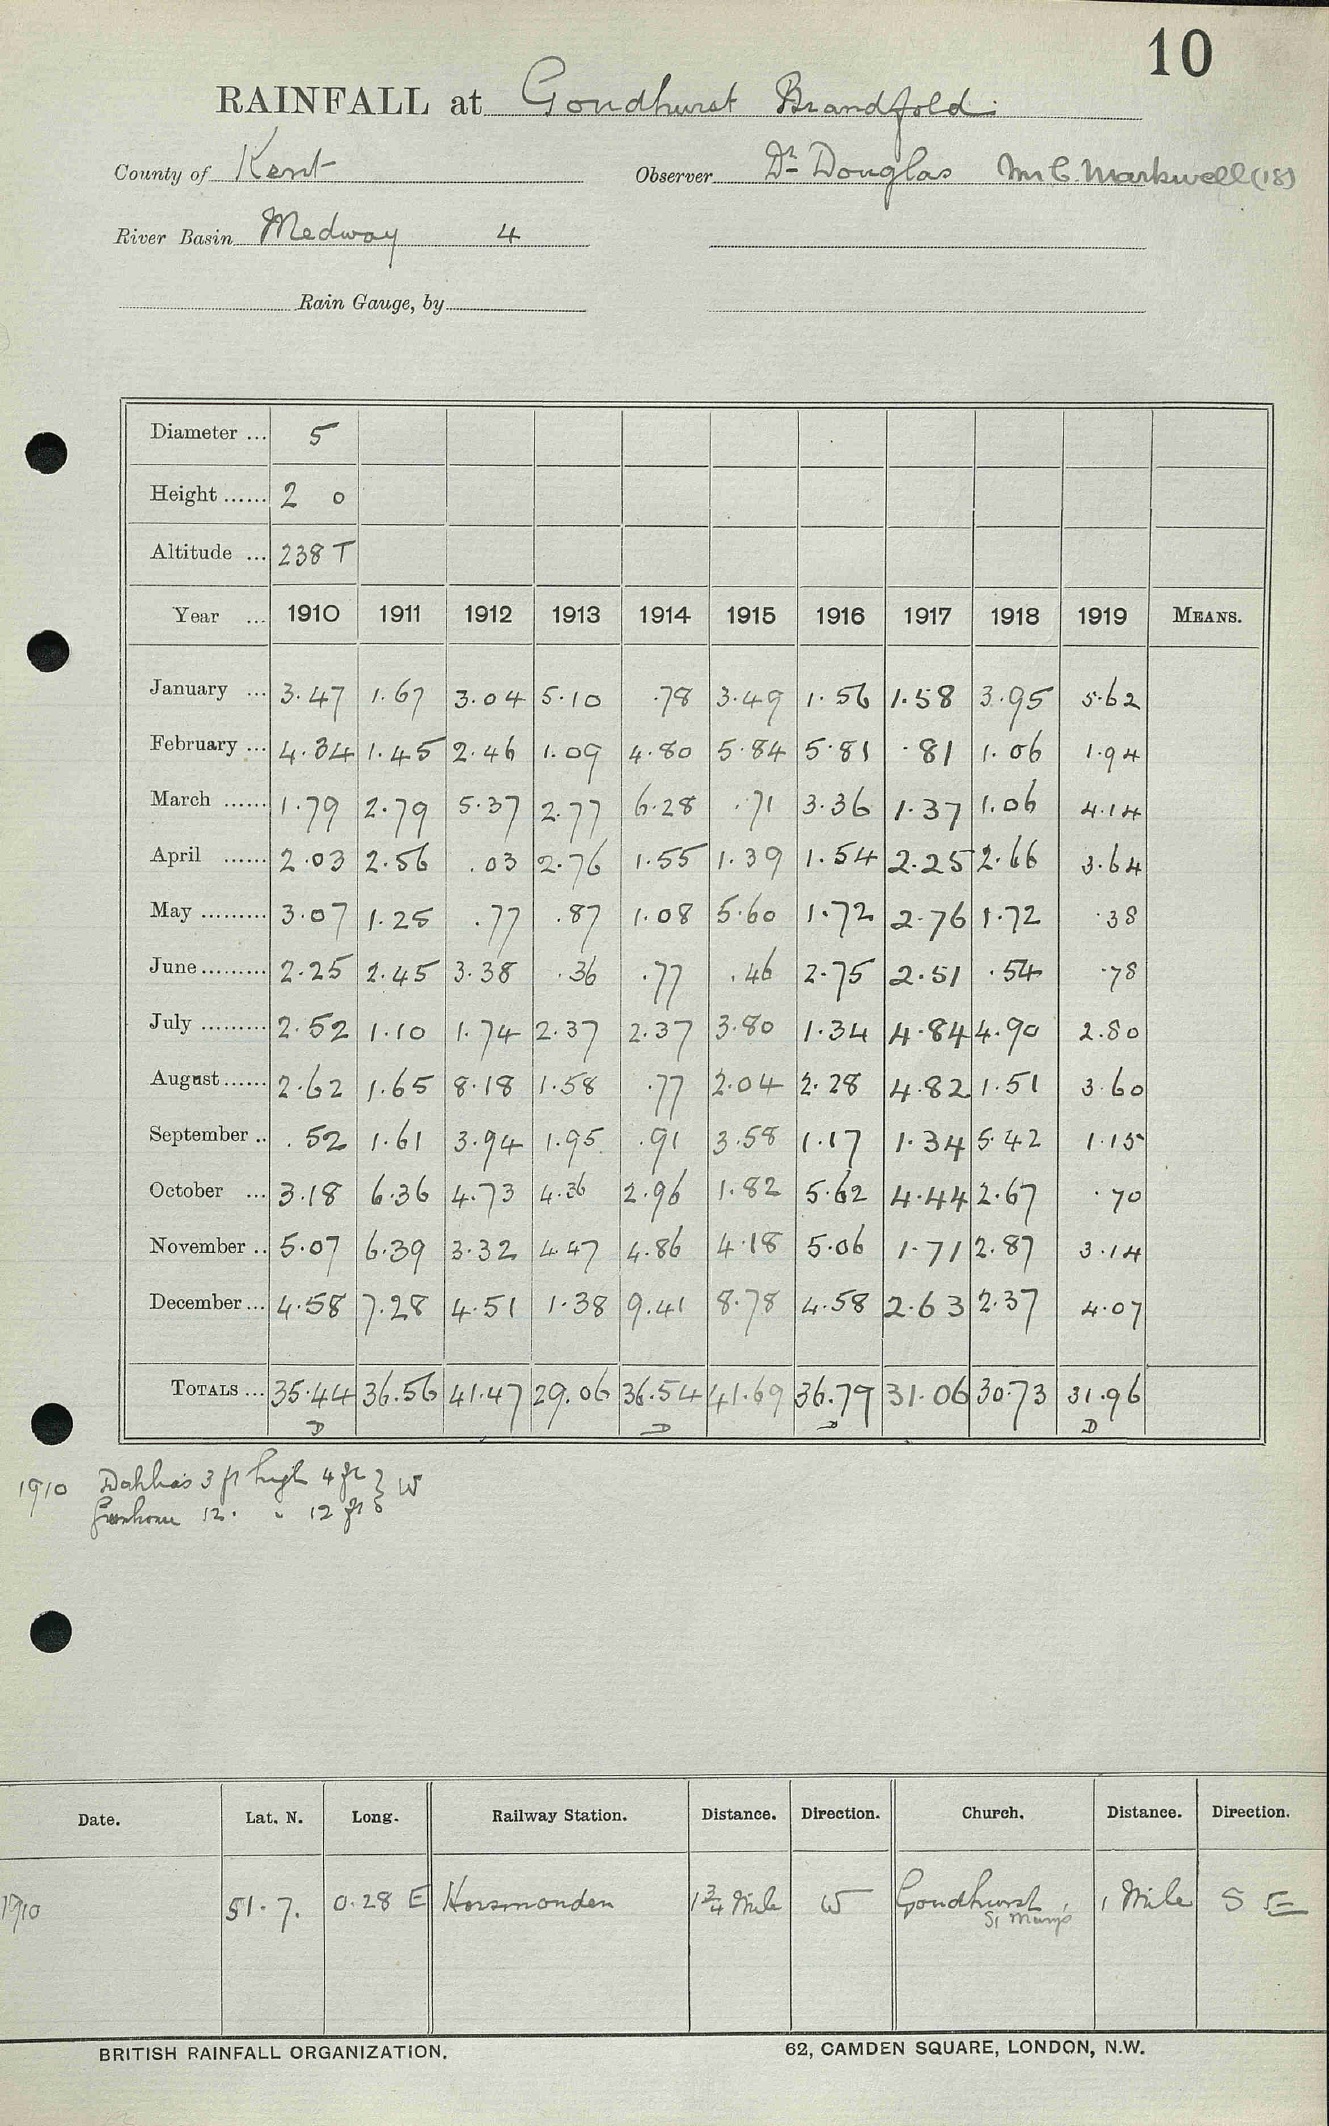 10
RAINFALL at Goudhurst Brandfold
County of Kent Observer Dr Douglas Mr C. Markwell (18)
River Basin Medway 4
Rain Gauge, by
Diameter ... 5
Height ...... 2 0
Altitude ... 238 T
Year ... 1910 1911 1912 1913 1914 1915 1916 1917 1918 1919 MEANS.
January ... 3.47 1.67 3.04 5.10 .78 3.49 1.56 1.58 3.95 5.62
February ... 4.34 1.45 2.46 1.09 4.80 5.84 5.81 .81 1.06 1.94
March ...... 1.79 2.79 5.37 2.77 6.28 .71 3.36 1.37 1.06 4.14
April ...... 2.03 2.56 .03 2.76 1.55 1.39 1.54 2.25 2.66 3.64
May ......... 3.07 1.25 .77 .87 1.08 5.60 1.72 2.76 1.72 .38
June ......... 2.25 2.45 3.38 .36 .77 .46 2.75 2.51 .54 .78
July ......... 2.52 1.10 1.74 2.37 2.37 3.80 1.34 4.84 4.90 2.80
August ...... 2.62 1.65 8.18 1.58 .77 2.04 2.28 4.82 1.51 3.60
September .. .52 1.61 3.94 1.95 .91 3.58 1.17 1.34 5.42 1.15
October ... 3.18 6.36 4.73 4.36 2.96 1.82 5.62 4.44 2.67 .70
November .. 5.07 6.39 3.32 4.47 4.86 4.18 5.06 1.71 2.87 3.14
December ... 4.58 7.28 4.51 1.38 9.41 8.78 4.58 2.63 2.37 4.07
TOTALS ... 35.44 36.56 41.47 29.06 36.54 41.69 36.79 31.06 30.73 31.96
D D D D
1910 Dahlias 3 ft high 4 ft } W
Greenhouse 12. " 12 ft
Date. Lat. N. Long. Railway Station. Distance. Direction. Church. Distance. Direction.
1910 51.7. 0.28 E Horsmonden 1 3/4 Mile W Goudhurst, 1 Mile S E
St Marys
BRITISH RAINFALL ORGANIZATION. 62, CAMDEN SQUARE, LONDON, N.W.